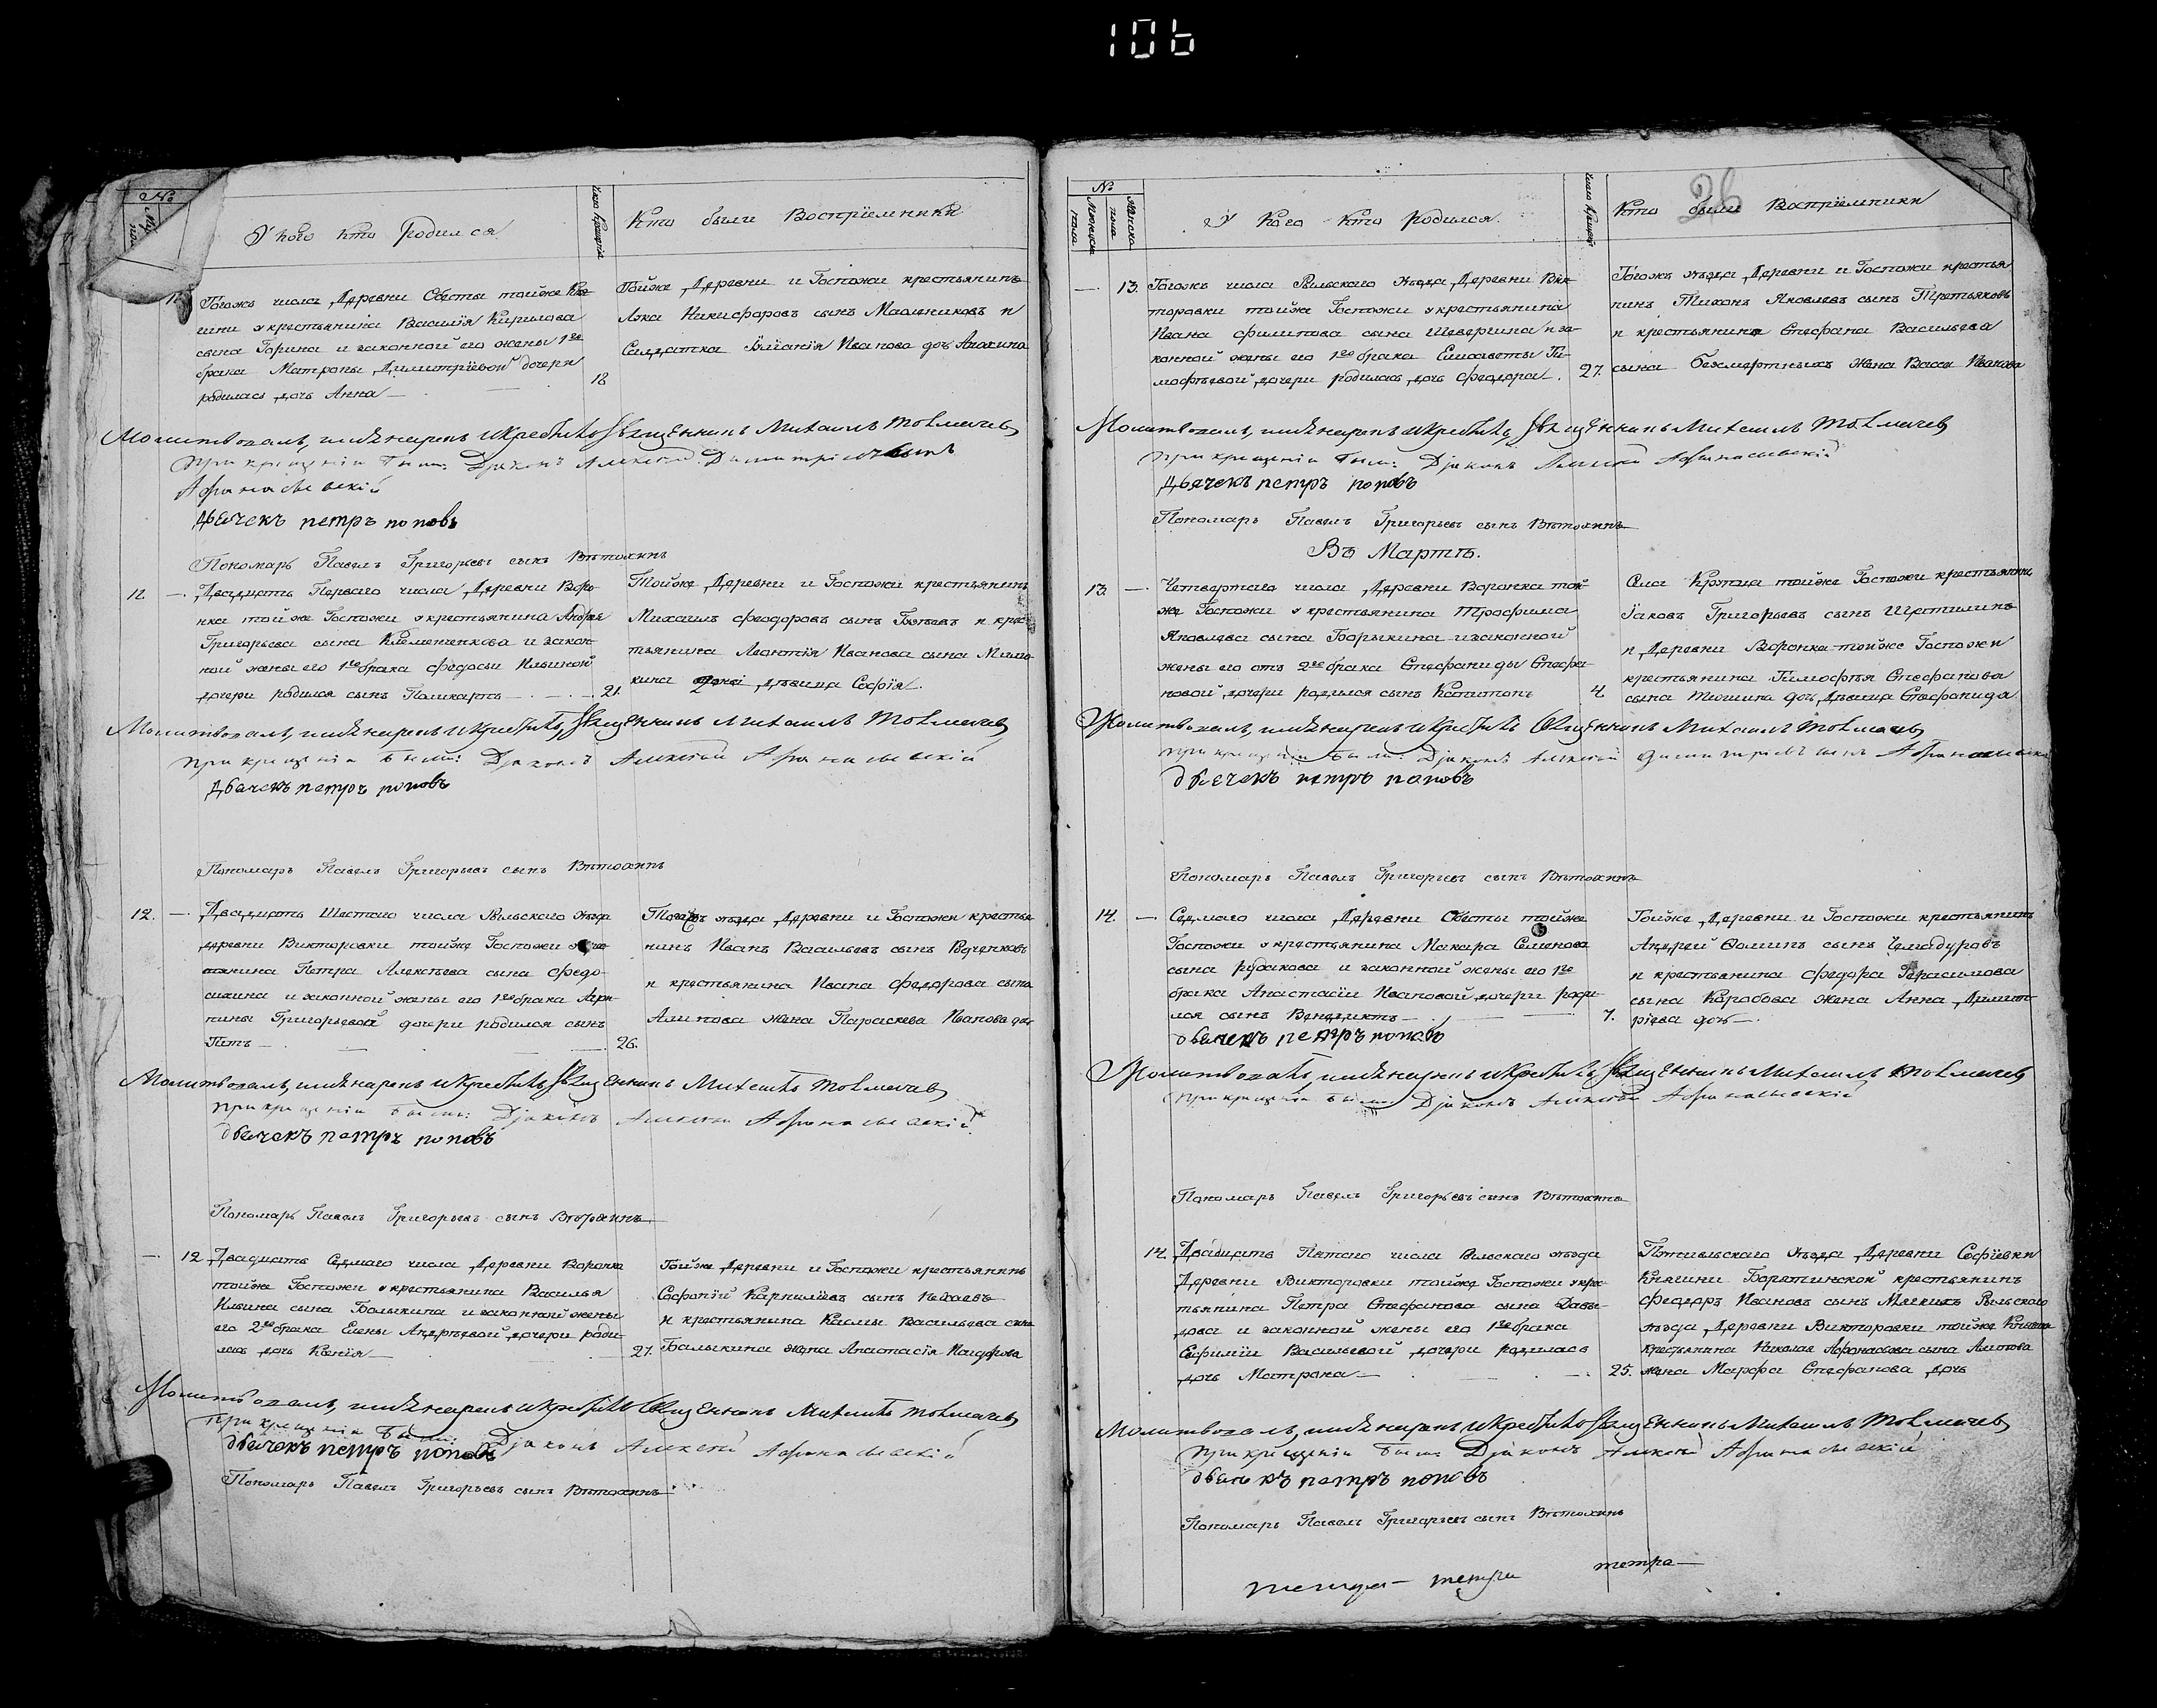 106
№
У кого кто родился
Число крещенія
Кто были Воспріемники
11. Тогожъ числа Деревни Свесты тойже Кня-
гини у крестьянина Василія Кирилова
сына Горина и законной его жены 1го
брака Матроны Димитріевой дочери
родилась дочь Анна
18
Тойже Деревни и Госпожи крестьянинъ
Лука Никифоровъ сынъ и
Салдатка Іуліанія Иванова дочь
Молитвовалъ, имя нарекъ и крестилъ Священникъ Михаилъ Толмачевъ
При крещеніи были: Діаконъ Алексей Димитріевъ сынъ
Афанасьевскій
Дьячекъ петръ поповъ
Пономарь Павелъ Григорьевъ сынъ Ветохинъ
12. — Двадцать Перваго числа Деревни Воро-
нка тойже Госпожи у крестьянина Андрея
Григорьева сына Клеменчкова и закон-
ной жены его 1го брака Федосьи Ильиной
дочери родился сынъ Поликарпъ
21.
Тойже Деревни и Госпожи крестьянинъ
Михаилъ Феодоровъ сынъ и крес-
тьянина Леонтія Иванова сына
девица Софія.
Молитвовалъ, имя нарекъ и крестилъ Священникъ Михаилъ Толмачевъ
При крещеніи были: Діаконъ Алексей Афанасьевскій
Дьячекъ петръ поповъ
Пономарь Павелъ Григорьевъ сынъ Ветохинъ
12. — Двадцать Шестого числа Рыльскаго уезда
деревни Викторовки тойже Госпожи у кре-
стьянина Петра Алексеева сына Федо-
сихина и законной жены его 1го брака Агри-
пины Григорьевой дочери родился сынъ
Титъ
26.
Тогожъ уезда Деревни и Госпожи крестья-
нинъ Иванъ Васильевъ сынъ
и крестьянина Ивана Федорова сына
Алипова жена Параскева Иванова дочь
Молитвовалъ, имя нарекъ и крестилъ Священникъ Михаилъ Толмачевъ
При крещеніи были: Діаконъ Алексей Афанасьевскій
дьячекъ петръ поповъ
Пономарь Павелъ Григорьевъ сынъ Ветохинъ
— 12 Двадцать Седмаго числа Деревни Воронка
тойже Госпожи у крестьянина Василья
Ильина сына Балыкина и законной жены
его 2го брака Елены Андреевой дочери роди-
лась дочь Ксенія
27.
Тойже Деревни и Госпожи крестьянинъ
Софоній Карниліевъ сынъ
и крестьянина Васильева сына
Балыкина жена Анастасія
Молитвовалъ, имя нарекъ и крестилъ Священникъ Михаилъ Толмачевъ
При крещеніи были: Діаконъ Алексей Афанасьевскій
дьячекъ петръ поповъ
Пономарь Павелъ Григорьевъ сынъ Ветохинъ
26
№
Мужеска пола
Женска пола
У Кого Кто Родился
Число Крещенія
Кто были Воспріемники
— 13. Тогожъ числа Рыльскаго уезда Деревни Вик-
торовки тойже Госпожи у крестьянина
Ивана Филипова сына Шевергина и за-
конной жены его 1го брака Елисаветы Ти-
мофеевой дочери родилась дочь Феодора.
27.
Тогожъ уезда Деревни и Госпожи крестья
нинъ Тихонъ Яковлевъ сынъ Третьяковъ
и крестьянина Стефана Васильева
сына Безмертныхъ жена Васса Иванова
Молитвовалъ, имя нарекъ и крестилъ Священникъ Михаилъ Толмачевъ
При крещеніи были: Діаконъ Алексей Афанасьевскій
Дьячекъ петръ поповъ
Пономарь Павелъ Григорьевъ сынъ Ветохинъ
Въ Марте.
13. — Четвертаго числа Деревни Воронка той-
же Госпожи у крестьянина Трофима
Яковлева сына Борыкина и законной
жены его отъ 2го брака Стефаниды Стефа-
новой дочери родился сынъ
4.
Села тойже Госпожи крестьянинъ
Іаковъ Григорьевъ сынъ
и Деревни Воронка тойже Госпожи
крестьянина Тимофея Стефанова
сына дочь Девица Стефанида
Молитвовалъ, имя нарекъ и крестилъ Священникъ Михаилъ Толмачевъ
При крещеніи были: Діаконъ Алексей Димитріевъ сынъ Афанасьевскій
дьячекъ петръ поповъ
Пономарь Павелъ Григорьевъ сынъ Ветохинъ
14. — Седмаго числа Деревни Свесты тойже
Госпожи у крестьянина Макара Семенова
сына Рудакова и законной жены его 1го
брака Анастасіи Ивановой дочери роди-
лся сынъ Венедиктъ
7.
Тойже Деревни и Госпожи крестьянинъ
Андрей Ѳоминъ сынъ Чемадуровъ
и крестьянина Федора Герасимова
сына Каробова жена Анна Димит-
ріева дочь
дьячекъ петръ поповъ
Молитвовалъ, имя нарекъ и крестилъ Священникъ Михаилъ Толмачевъ
При крещеніи были: Діаконъ Алексей Афанасьевскій
Пономарь Павелъ Григорьевъ сынъ Ветохинъ
14. Двадцать Пятаго числа Рыльскаго уезда
Деревни Викторовки тойже Госпожи у крес-
тьянина Петра Стефанова сына Давы-
дова и законной жены его 1го брака
Евфиміи Васильевой дочери родилась
дочь Матрона
25.
Путивльскаго уезда Деревни Софіевки
Княгини Барятинской крестьянинъ
Федоръ Ивановъ сынъ Мягкихъ Рыльскаго
уезда Деревни Викторовки тойже Княгини
крестьянина Николая Афонасьева сына Алипова
жена Марфа Стефанова дочь
Молитвовалъ, имя нарекъ и крестилъ Священникъ Михаилъ Толмачевъ
При крещеніи были: Діаконъ Алексей Афанасьевскій
дьячекъ петръ поповъ
Пономарь Павелъ Григорьевъ сынъ Ветохинъ